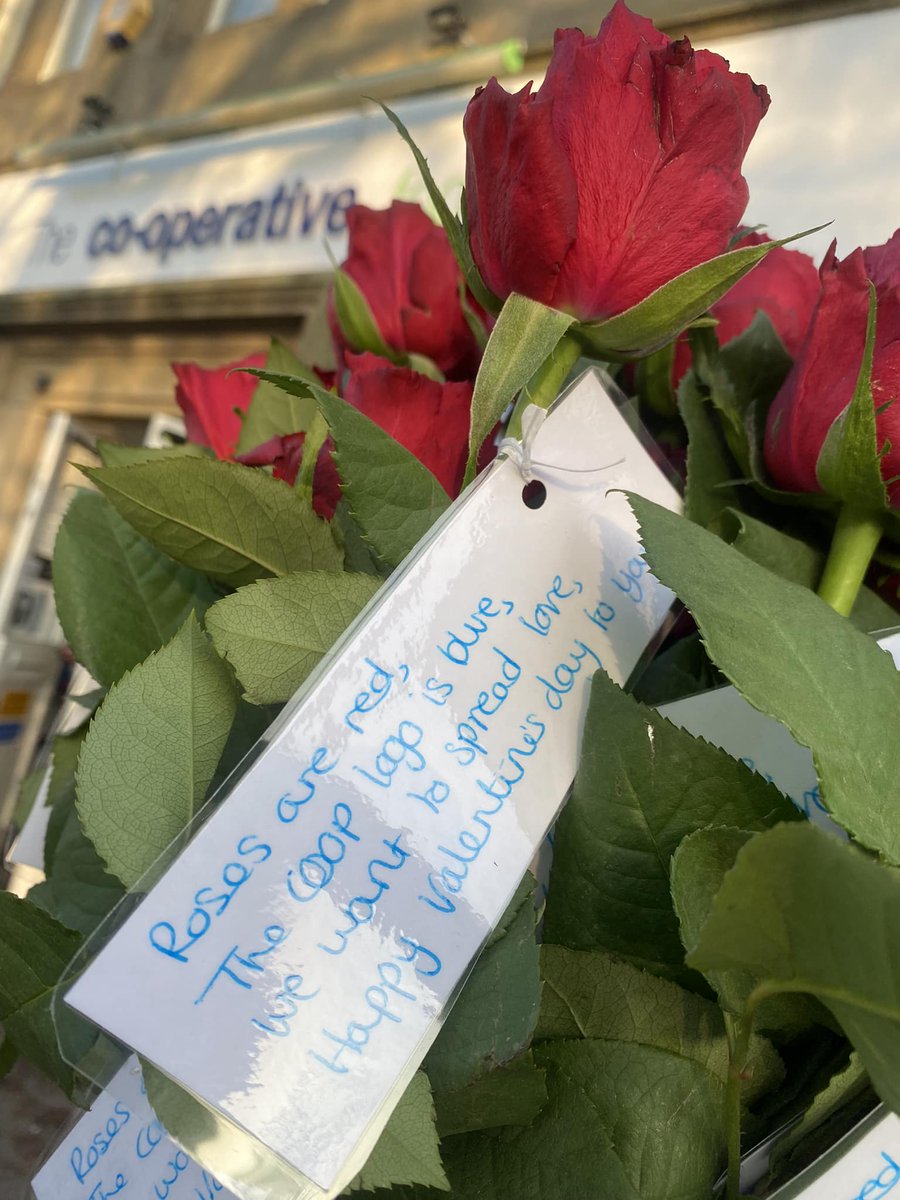 The co-operative
Roses are red,
The COOP logo is blue,
We want to spread love,
Happy Valentine's day to you
Roses
The CO